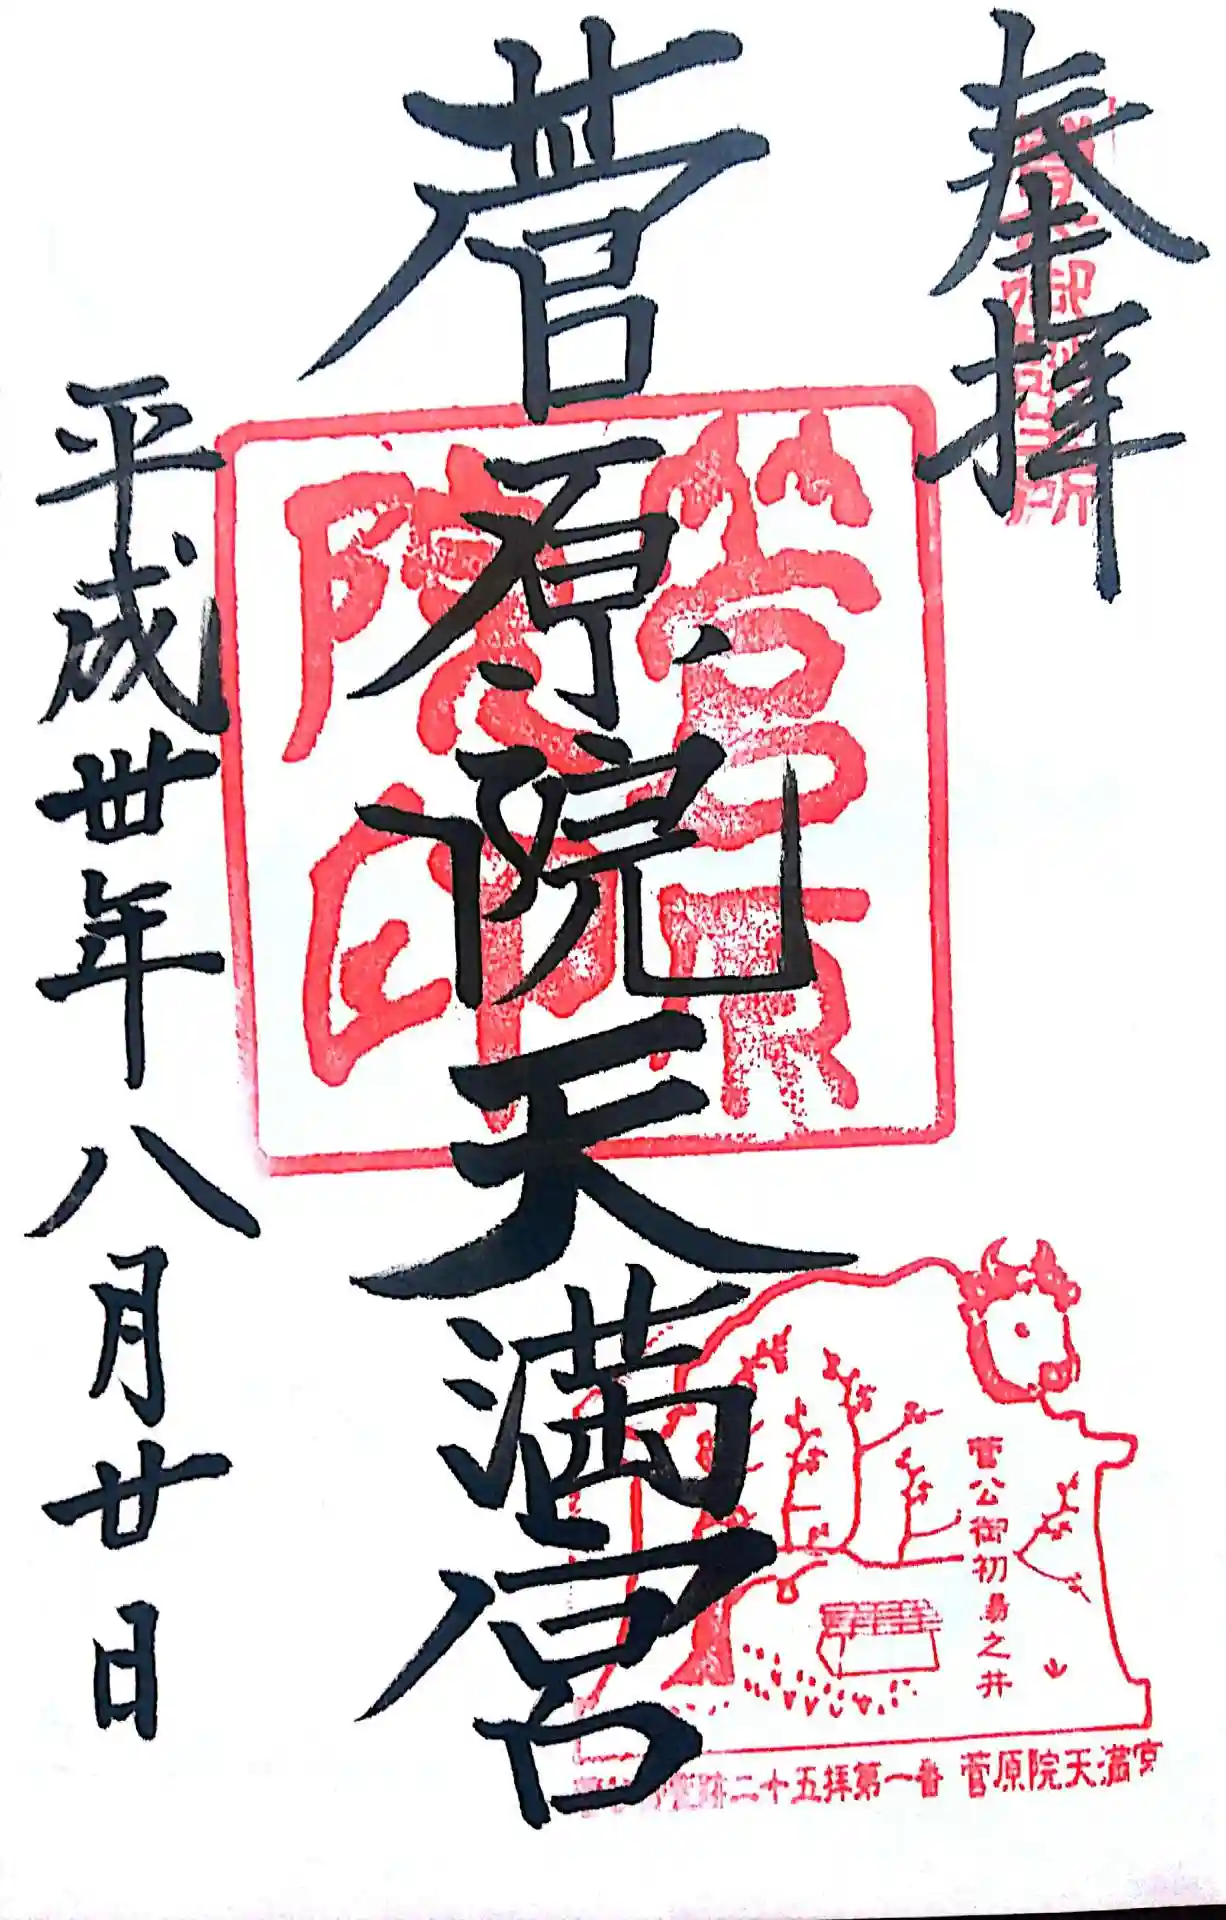 奉拝
菅原院天満宮
平成丗年八月廿日
菅公御初湯之井
跡二十五拝第一番 菅原院天満宮